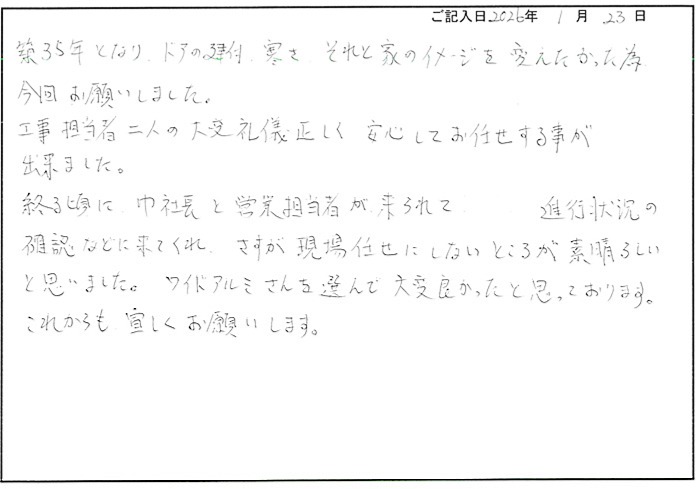 ご記入日 2026年 1月 23日
築35年となり、ドアの建付、寒さ、それと家のイメージを変えたかった為
今回お願いしました。
工事担当者二人の大変礼儀正しく安心してお任せする事が
出来ました。
終る頃に、中社長と営業担当者が来られて 進行状況の
確認などに来てくれ、さすが現場任せにしないところが素晴らしい
と思いました。ワイドアルミさんを選んで大変良かったと思っております。
これからも宜しくお願いします。